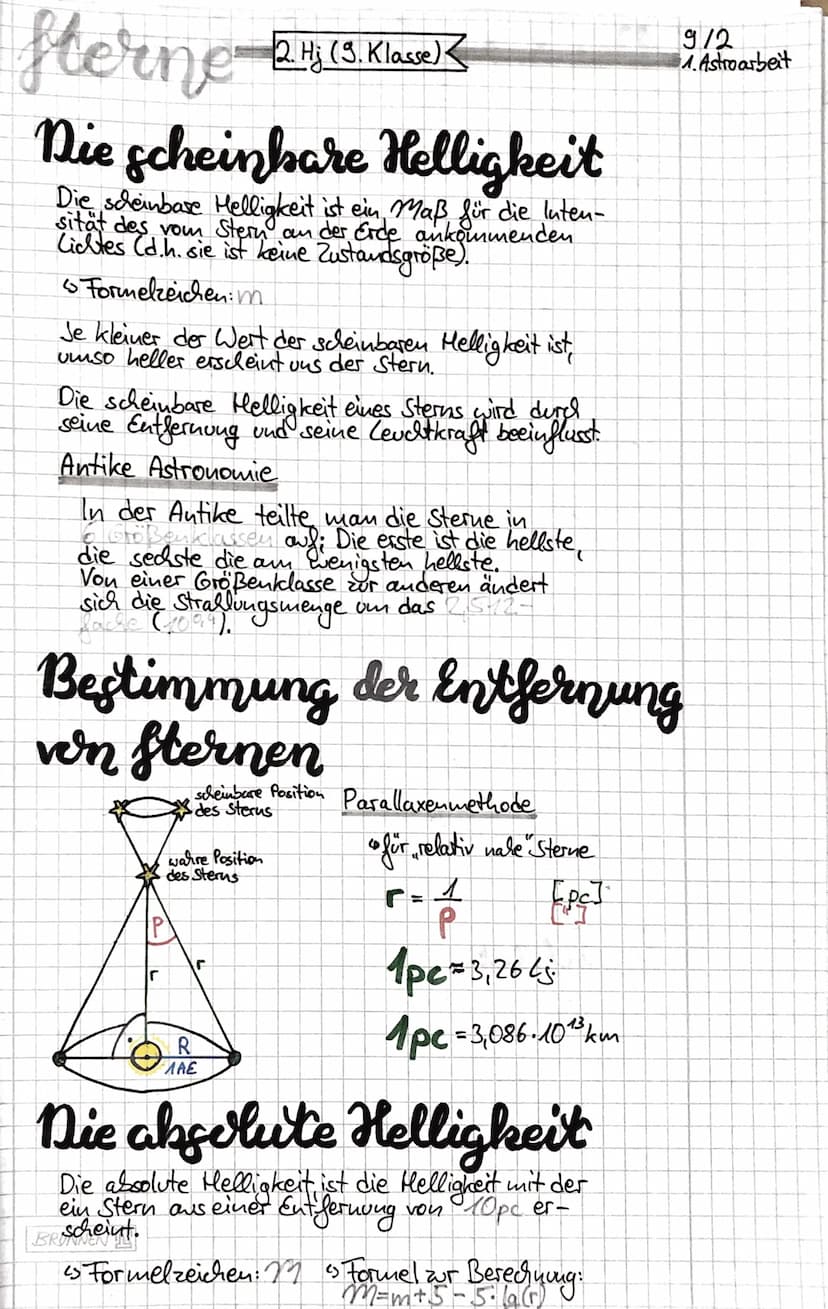 Sterne
2. Hj (9. Klasse)
9/2
1. Astroarbeit
Die scheinbare Helligkeit
Die scheinbare Helligkeit ist ein Maß für die Inten-
sität des vom Stern an der Erde ankommenden
Lichtes (d.h. sie ist keine Zustandsgröße).
↳ Formelzeichen: m
Je kleiner der Wert der scheinbaren Helligkeit ist,
umso heller erscheint uns der Stern.
Die scheinbare Helligkeit eines Sterns wird durch
seine Entfernung und seine Leuchtkraft beeinflusst.
Antike Astronomie
In der Antike teilte man die Sterne in
6 Größenklassen auf; Die erste ist die hellste,
die sechste die am wenigsten hellste.
Von einer Größenklasse zur anderen ändert
sich die Strahlungsmenge um das 2,512-
fache (10^0,4).
Bestimmung der Entfernung
von Sternen
scheinbare Position
des Sterns
wahre Position
des Sterns
P
r
r
R
1AE
Parallaxenmethode
↳ für „relativ nahe" Sterne
r = 1/P [pc]
["]
1pc ≈ 3,26 Lj
1pc = 3,086 · 10^13 km
Die absolute Helligkeit
Die absolute Helligkeit ist die Helligkeit mit der
ein Stern aus einer Entfernung von 10pc er-
scheint.
BRUNNEN
↳ Formelzeichen: M ↳ Formel zur Berechnung:
M = m + 5 - 5 · lg(r)